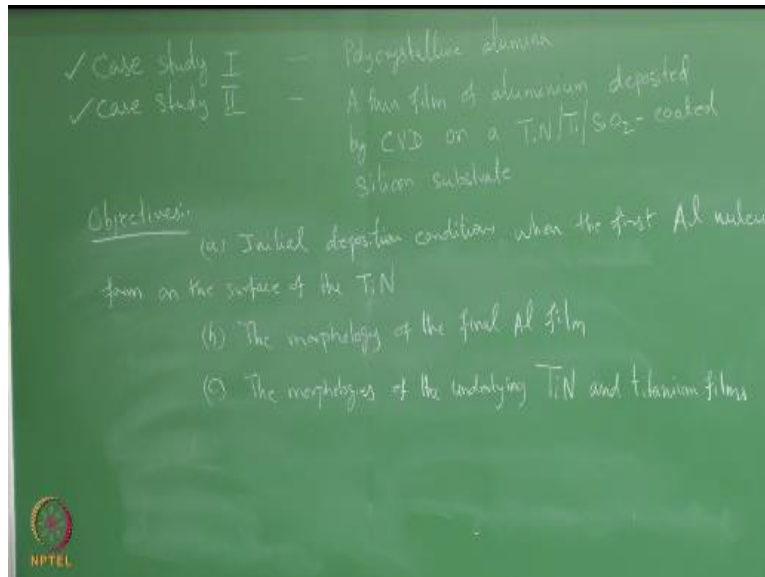 ✓ Case study I – Polycrystalline alumina
✓ Case study II – A thin film of aluminium deposited
by CVD on a TiN/Ti/SiO2-coated
Silicon substrate
Objectives:
(a) Initial deposition conditions when the first Al nuclei
form on the surface of the TiN
(b) The morphology of the final Al film
(c) The morphologies of the underlying TiN and titanium films
NPTEL